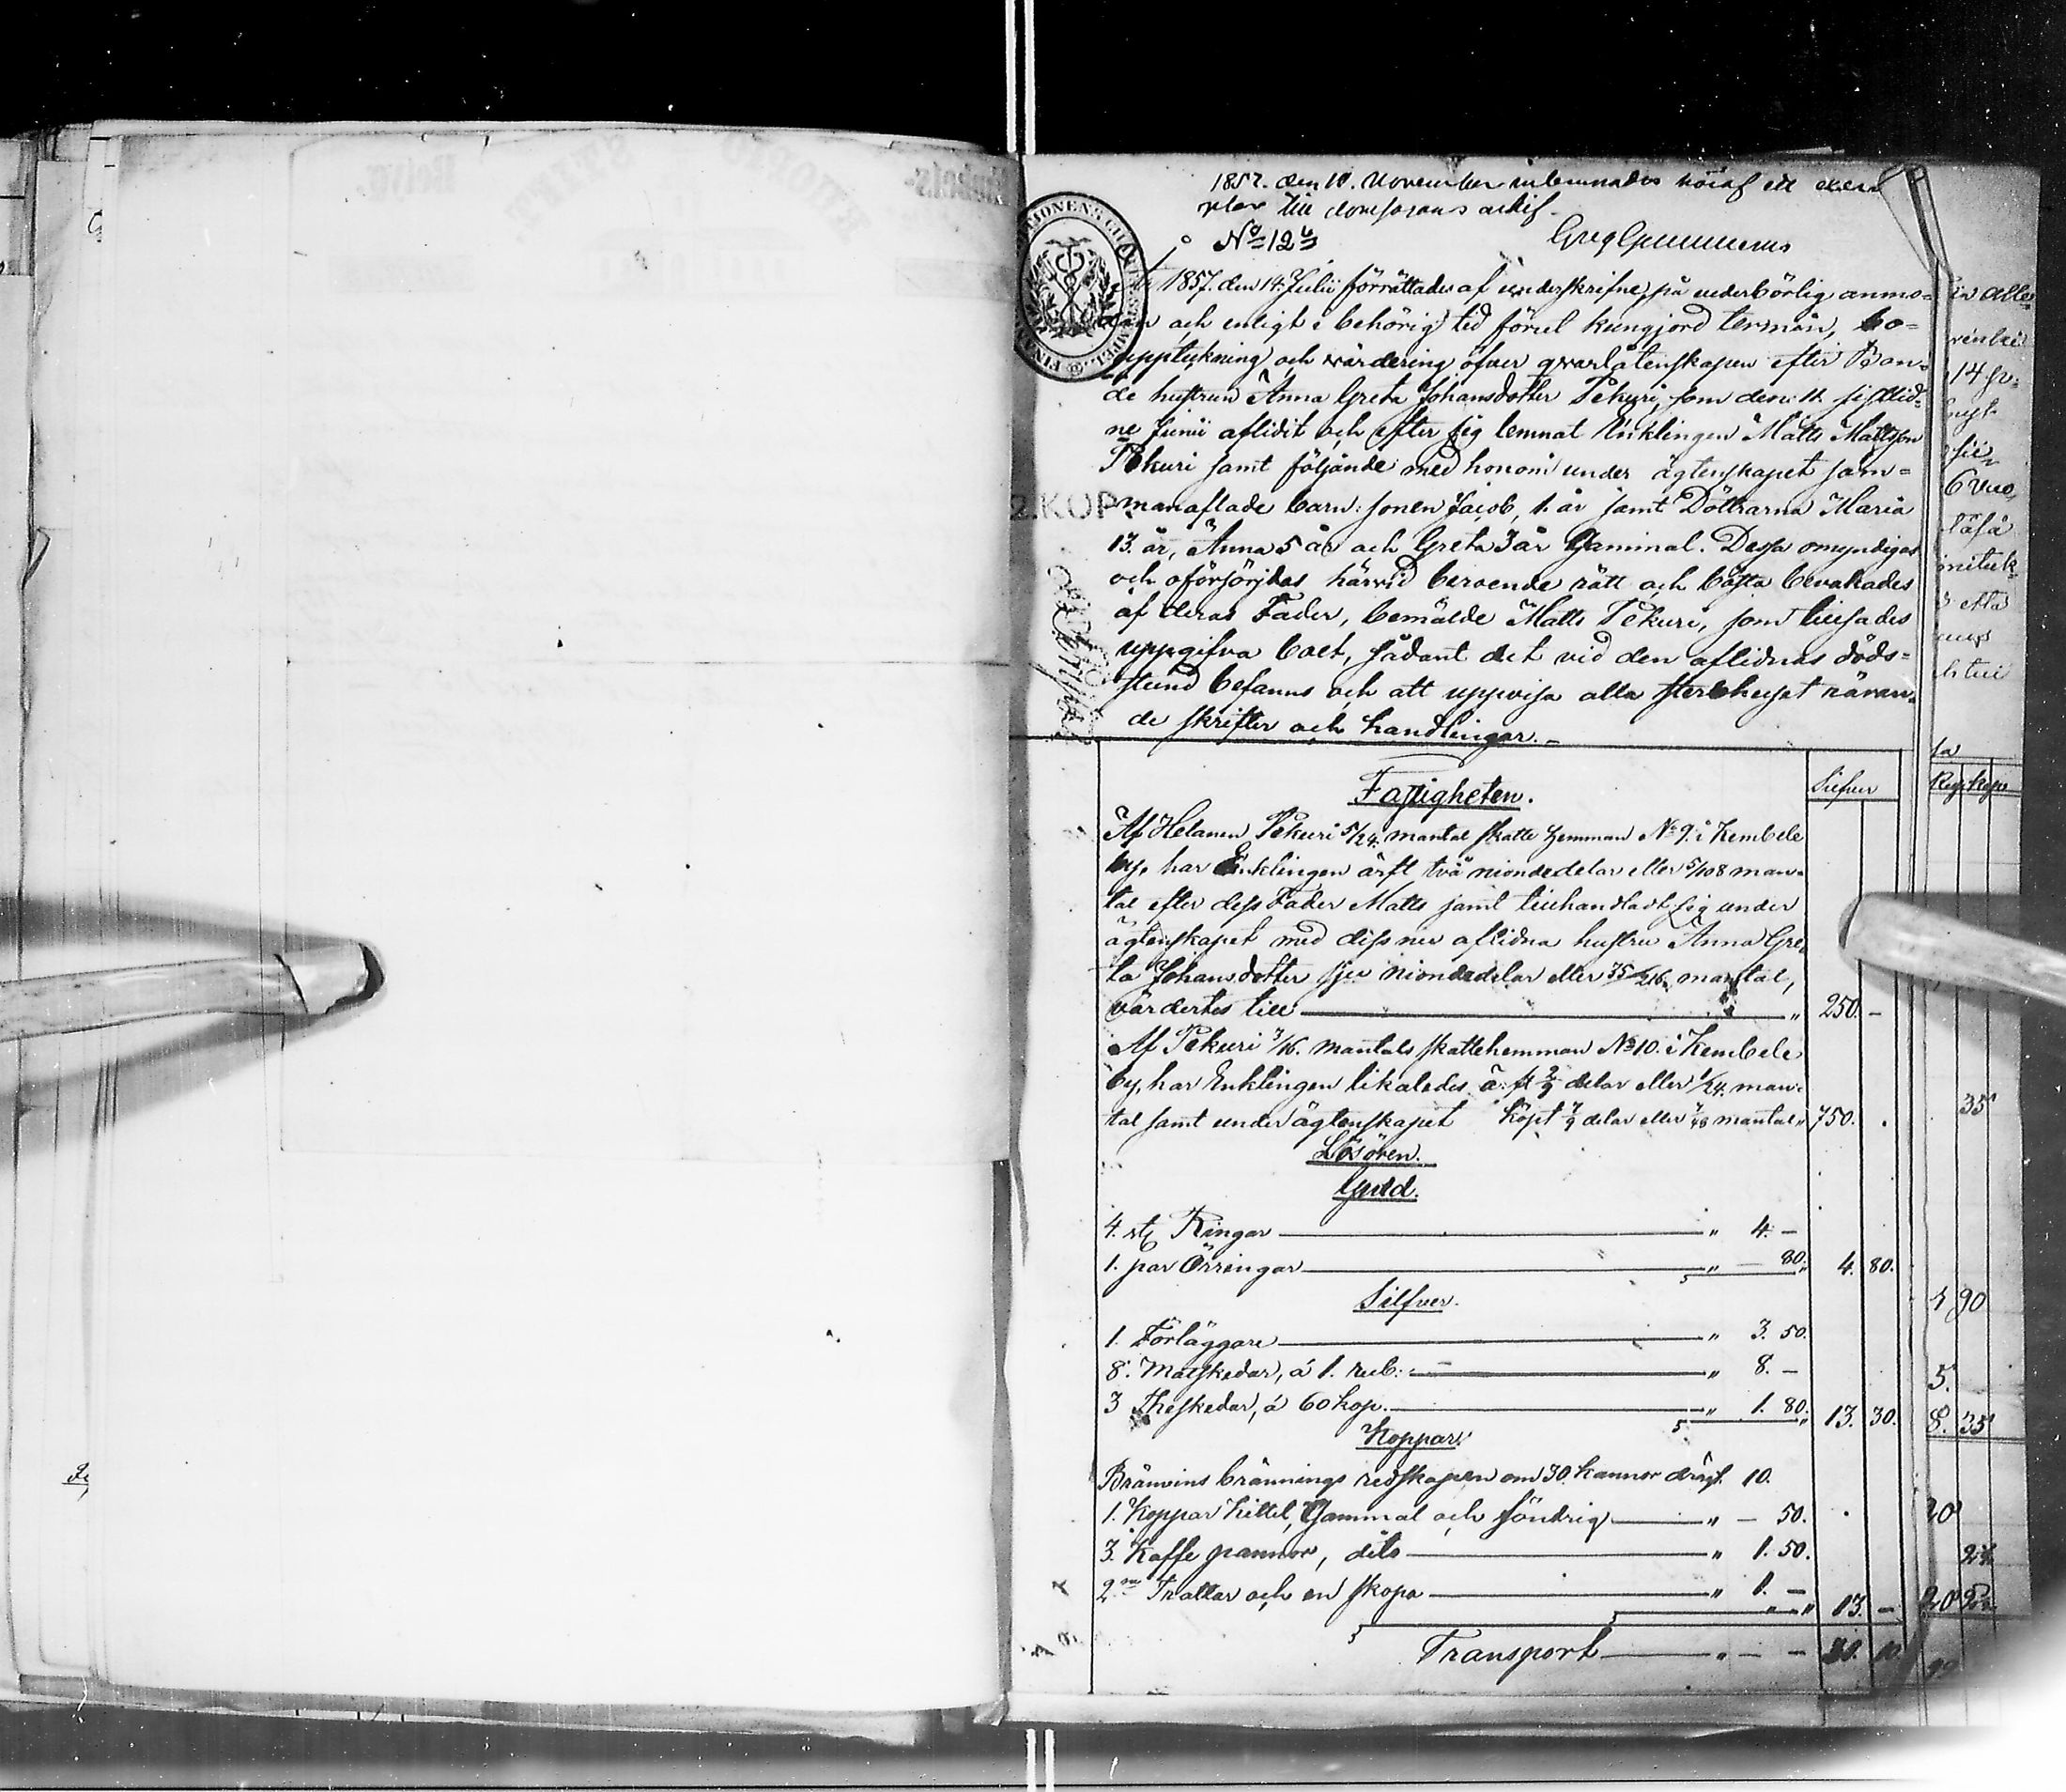 1857. den 10. November inlemnades häraf ett exem
plar till domsagans arkif.
No 12
År 1857. den 14. Julii förrättades af underskrifne, på vederbörlig anmo=
dan och enligt i behörig tid förut kungjord termin, bo=
uppteckning och värdering öfver qvarlåtenskapen efter Bon=
de hustrun Anna Greta Johansdotter Pekuri, som den 11 sistlid=
ne Junii aflidit och efter sig lemnat Enklingen Matts Mattsson
Pekuri samt följande med honom under ägtenskapet sam=
manaflade barn: sonen Jacob, 1. år samt Döttrarna Maria
13. år, Anna 5 år och Greta 3 år gammal. Dessa omyndiges
och oförsörjdas härvid beroende rätt och bästa bevakades
af deras Fader, bemälde Matts Pekuri, som tillsades
uppgifva boet, sådant det vid den aflidnas döds=
stund befanns och att uppvisa alla sterbhuset röran=
de skrifter och handlingar.
2.KOP.
Fastigheten.
Silfver
Af Helanen Pekuri 5/24. mantal skatte hemman No 9. i Kembele
by, har Enklingen ärft två niondedelar eller 5/108 man=
tal efter dess Fader Matts samt tillhandlat sig under
ägtenskapet med dess nu aflidna hustru Anna Gre=
ta Johansdotter sju niondedelar eller 35/216 mantal,
värdertes till " 250. -
Af Pekuri 3/16. mantals skattehemman No 10. i Kembele
by, har Enklingen likaledes ärft 2/9 delar eller 1/24. man=
tal samt under ägtenskapet köpt 7/9 delar eller 7/48 mantal " 750.
Lösören.
Guld.
4. st Ringar " 4. -
1. par Örringar " - 80. 4. 80.
Silfver.
1. Förläggare " 3. 50.
8. Matskedar, á 1. rub: " 8. -
3 Theskedar, á 60 kop. " 1. 80. 13. 30.
Koppar.
Bränvins brännings redskapen om 30. kannor drägt. 10.
1. Koppar kittel, gammal och söndrig " - 50.
3. Kaffe pannor, dito " 1. 50.
2ne Trattar och en skopa " 1. - 13. -
Transport " - - 31. 10